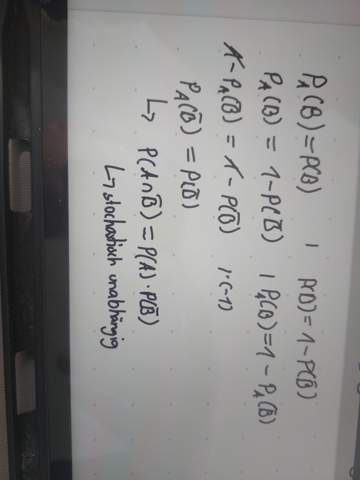 P_A(B) = P(B) | P(B) = 1 - P(B̄)
P_A(B) = 1 - P(B̄) | P_A(B) = 1 - P_A(B̄)
1 - P_A(B̄) = 1 - P(B̄) | ·(-1)
P_A(B̄) = P(B̄)
↳ P(A∩B̄) = P(A) · P(B̄)
↳ stochastisch unabhängig